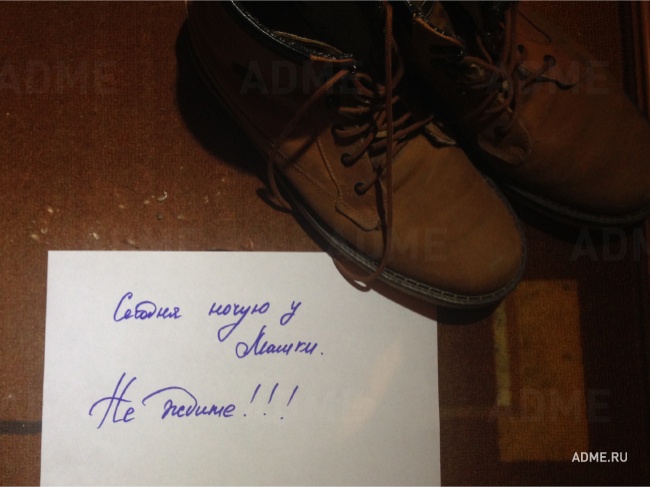 ADME ADME
Сегодня ночую у
Машки.
Не ждите!!!
ADME ADME
ADME
ADME.RU